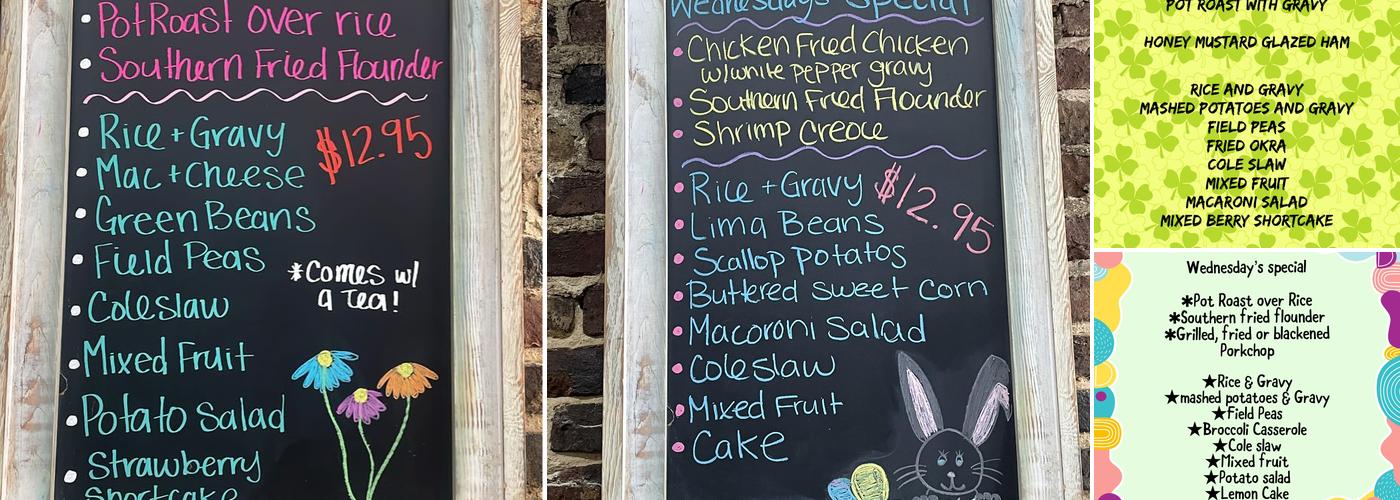 PotRoast over rice
Southern Fried Flounder
Rice + Gravy
$12.95
Mac + Cheese
Green Beans
Field Peas
*Comes w/
a Tea!
Coleslaw
Mixed Fruit
Potato Salad
Strawberry
Shortcake
Wednesdays Special
Chicken Fried Chicken
w/white pepper gravy
Southern Fried Flounder
Shrimp Creole
Rice + Gravy
$12.95
Lima Beans
Scallop Potatos
Buttered Sweet Corn
Macoroni Salad
Coleslaw
Mixed Fruit
Cake
POT ROAST WITH GRAVY
HONEY MUSTARD GLAZED HAM
RICE AND GRAVY
MASHED POTATOES AND GRAVY
FIELD PEAS
FRIED OKRA
COLE SLAW
MIXED FRUIT
MACARONI SALAD
MIXED BERRY SHORTCAKE
Wednesday's special
*Pot Roast over Rice
*Southern fried flounder
*Grilled, fried or blackened
Porkchop
★Rice & Gravy
★mashed potatoes & Gravy
★Field Peas
★Broccoli Casserole
★Cole slaw
★Mixed fruit
★Potato salad
★Lemon Cake